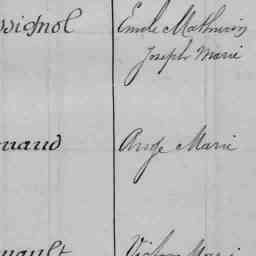 ssignol Emile Mathurin
Joseph Marie
naud Ange Marie
nault Victor Marie